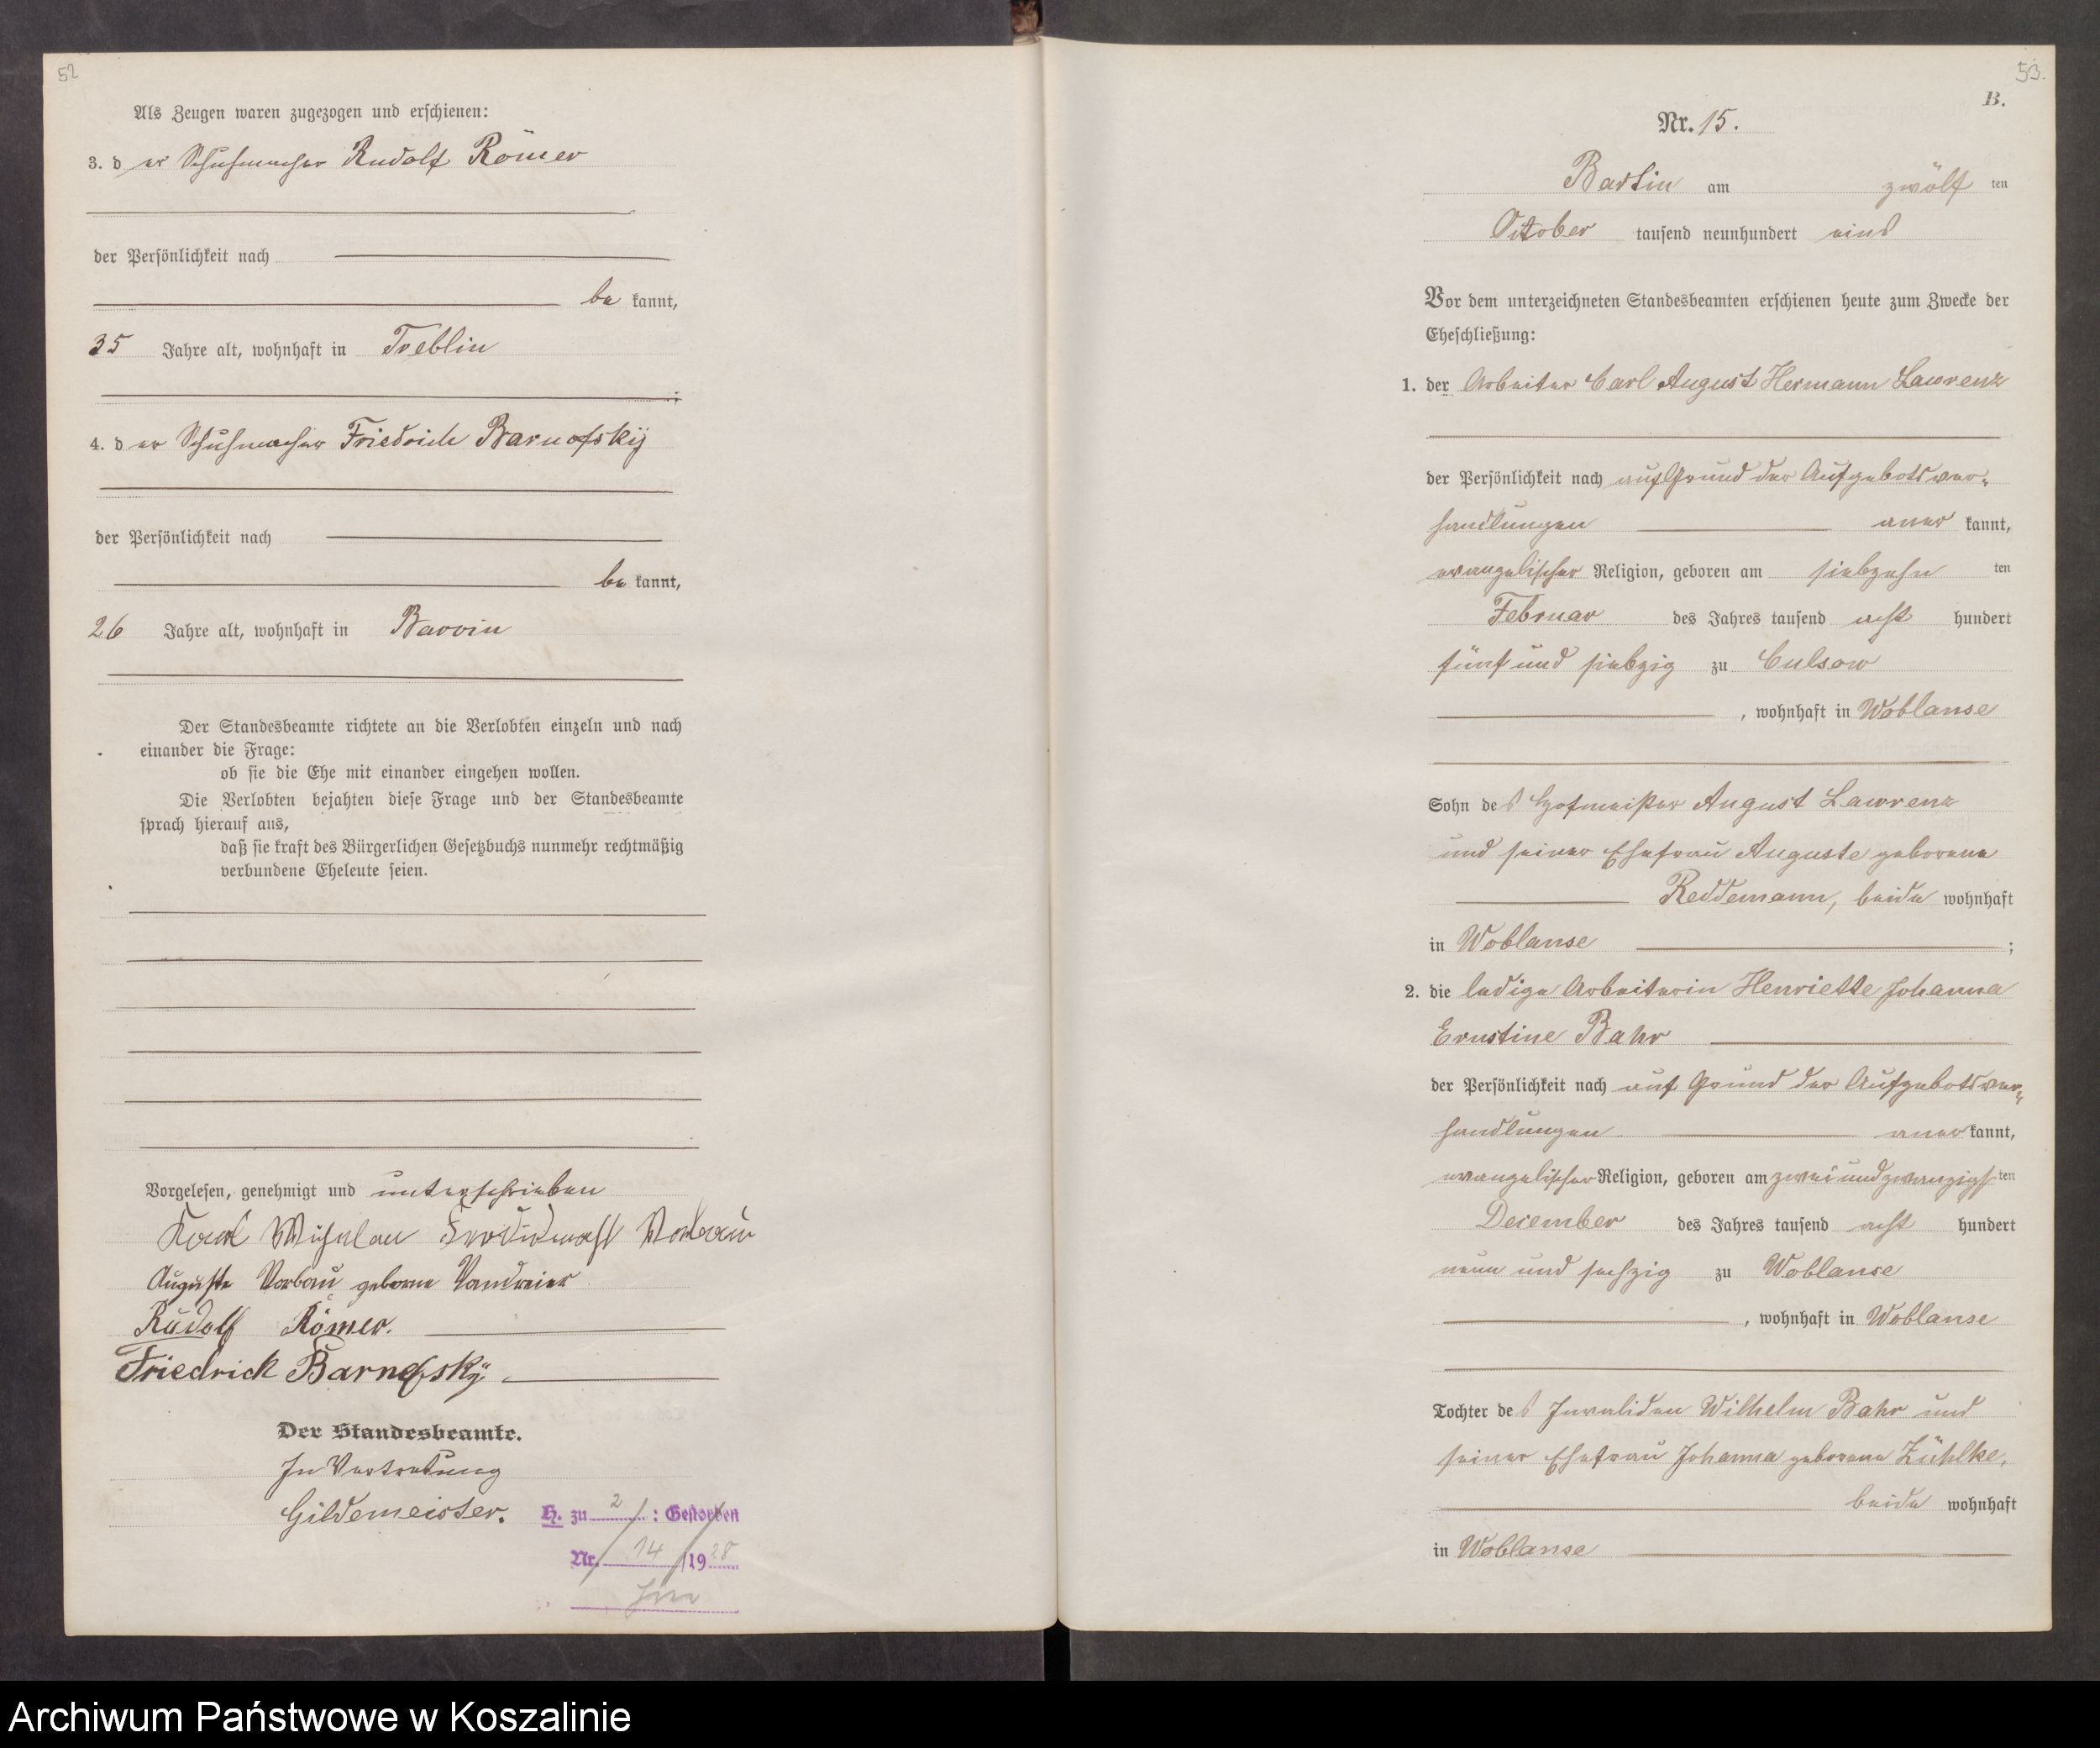 52
Als Zeugen waren zugezogen und erschienen:
3. der Schuhmacher Rudolf Römer
der Persönlichkeit nach
be kannt,
35 Jahre alt, wohnhaft in Treblin
;
4. der Schuhmacher Friedrich Barnofsky
der Persönlichkeit nach
be kannt,
26 Jahre alt, wohnhaft in Barvin
Der Standesbeamte richtete an die Verlobten einzeln und nach
einander die Frage:
ob sie die Ehe mit einander eingehen wollen.
Die Verlobten bejahten diese Frage und der Standesbeamte
sprach hierauf aus,
daß sie kraft des Bürgerlichen Gesetzbuchs nunmehr rechtmäßig
verbundene Eheleute seien.
Vorgelesen, genehmigt und unterschrieben
Auguste Vorbau geborne Vandreier
Rudolf Römer.
Friedrick Barnofsky
Der Standesbeamte.
In Vertretung
Gildemeister.
H. zu 2 : Gestorben
Nr. 14 /1928
53.
B.
Nr. 15.
Bartin am zwölf ten
October tausend neunhundert eins
Vor dem unterzeichneten Standesbeamten erschienen heute zum Zwecke der
Eheschließung:
1. der Arbeiter Carl August Hermann Lawrenz
der Persönlichkeit nach auf Grund der Aufgebotsver-
handlungen aner kannt,
evangelischer Religion, geboren am siebzehn ten
Februar des Jahres tausend acht hundert
fünf und siebzig zu Culsow
, wohnhaft in Woblanse
Sohn des Hofmeister August Lawrenz
und seiner Ehefrau Auguste geborene
Reddemann, beide wohnhaft
in Woblanse ;
2. die ledige Arbeiterin Henriette Johanna
Ernstine Bahr
der Persönlichkeit nach auf Grund der Aufgebotsver-
handlungen aner kannt,
evangelischer Religion, geboren am zwei und zwanzigs ten
December des Jahres tausend acht hundert
neun und sechzig zu Woblanse
, wohnhaft in Woblanse
Tochter des Invaliden Wilhelm Bahr und
seiner Ehefrau Johanna geborene Zühlke,
beide wohnhaft
in Woblanse
Archiwum Państwowe w Koszalinie